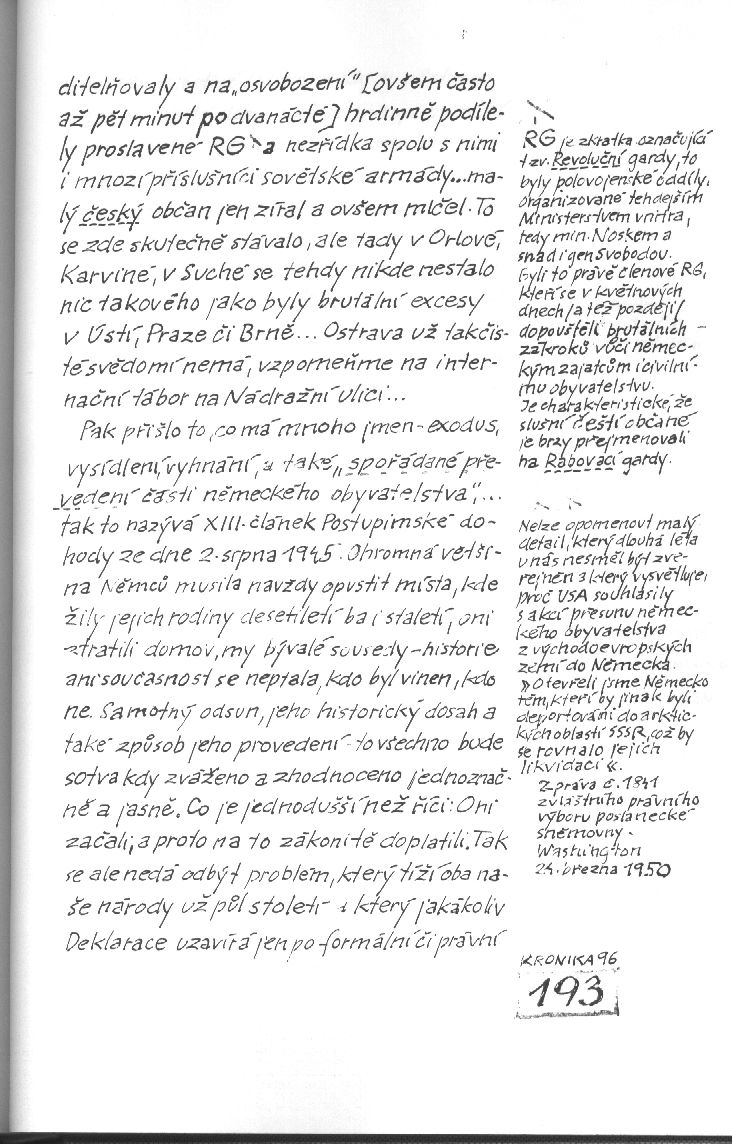 ditelňovaly a na „osvobození“ [ovšem často
až pět minut po dvanácté] hrdinně podíle-
ly proslavené RG a nezřídka spolu s nimi
i mnozí příslušníci sovětské armády...ma-
lý český občan jen zíral a ovšem mlčel. To
se zde skutečně stávalo, ale tady v Orlové,
Karviné, v Suché se tehdy nikde nestalo
nic takového jako byly brutální excesy
v Ústí, Praze či Brně... Ostrava už tak čis-
té svědomí nemá, vzpomeňme na inter-
nační tábor na Nádražní ulici...
Pak přišlo to, co má mnoho jmen - exodus,
vysídlení, vyhnání, a také „spořádané pře-
vedení části německého obyvatelstva“,...
tak to nazývá XIII. článek Postupimské do-
hody ze dne 2. srpna 1945. Ohromná větší-
na Němců musila navždy opustit místa, kde
žily jejich rodiny desetiletí ba i staletí, oni
ztratili domov, my bývalé sousedy - historie
ani současnost se neptala, kdo byl vinen, kdo
ne. Samotný odsun, jeho historický dosah a
také způsob jeho provedení - to všechno bude
sotva kdy zváženo a zhodnoceno jednoznač-
ně a jasně. Co je jednodušší než říci: Oni
začali, a proto na to zákonitě doplatili. Tak
se ale nedá odbýt problém, který tíží oba na-
še národy už půl století a který jakákoliv
Deklarace uzavírá jen po formální či právní
RG je zkratka označující
tzv. Revoluční gardy, to
byly polovojenské oddíly,
organizované tehdejším
Ministerstvem vnitra,
tedy min. Noskem a
snad i gen Svobodou.
Byli to právě členové RG,
kteří se v květnových
dnech /a též později/
dopouštěli brutálních
zákroků vůči němec-
kým zajatcům i civilní-
mu obyvatelstvu.
Je charakteristické, že
slušní čeští občané
je brzy přejmenovali
na Rabovací gardy.
Nelze opomenout malý
detail, který dlouhá léta
u nás nesměl být zve-
řejněn a který vysvětluje,
proč USA souhlasily
s akcí přesunu němec-
kého obyvatelstva
z východoevropských
zemí do Německa.
»Otevřeli jsme Německo
těm, kteří by jinak byli
deportováni do arktic-
kých oblastí SSSR, což by
se rovnalo jejich
likvidaci«.
Zpráva č. 1841
zvláštního právního
výboru poslanecké
sněmovny.
Washington
24. března 1950
KRONIKA 96
193